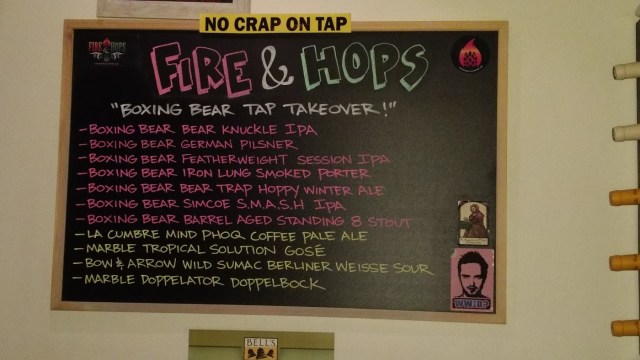 NO CRAP ON TAP
FIRE & HOPS
FIRE & HOPS
"BOXING BEAR TAP TAKEOVER!"
-BOXING BEAR BEAR KNUCKLE IPA
-BOXING BEAR GERMAN PILSNER
-BOXING BEAR FEATHERWEIGHT SESSION IPA
-BOXING BEAR IRON LUNG SMOKED PORTER
-BOXING BEAR BEAR TRAP HOPPY WINTER ALE
-BOXING BEAR SIMCOE S.M.A.S.H IPA
-BOXING BEAR BARREL AGED STANDING 8 STOUT
-LA CUMBRE MIND PHOQ COFFEE PALE ALE
-MARBLE TROPICAL SOLUTION GOSÉ
-BOW & ARROW WILD SUMAC BERLINER WEISSE SOUR
-MARBLE DOPPELATOR DOPPELBOCK
BELL'S